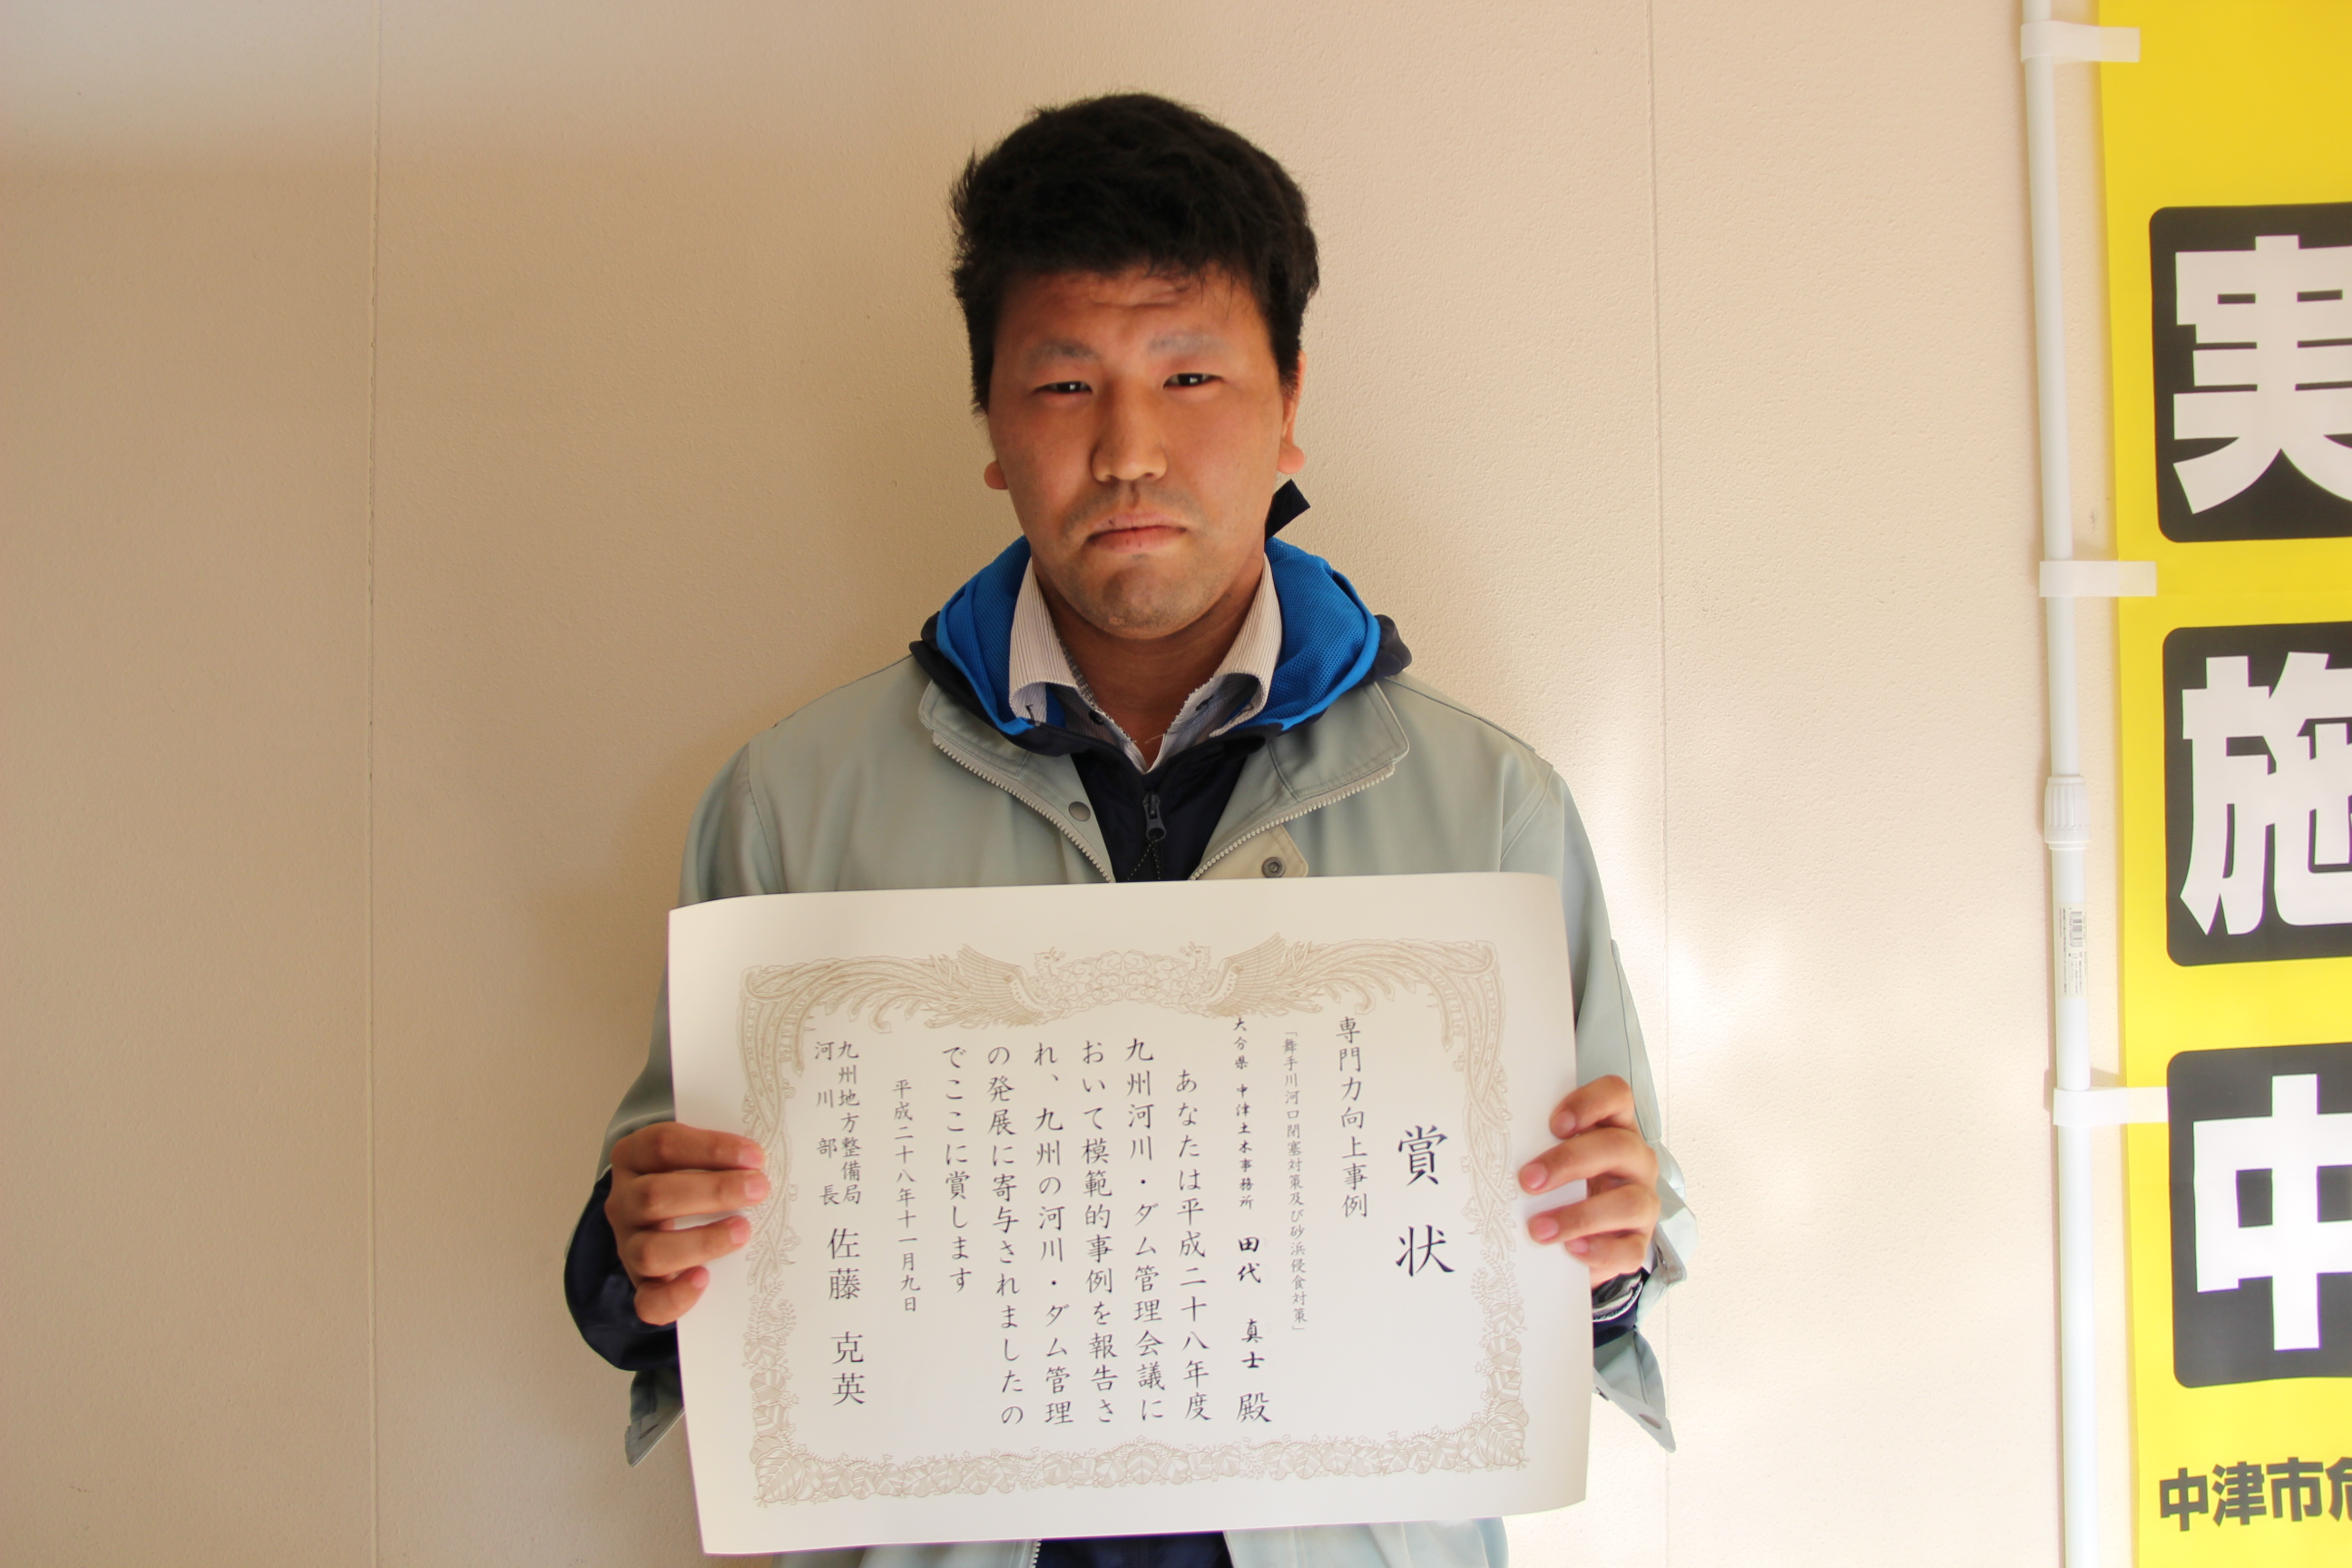 賞状
専門力向上事例
「舞手川河口閉塞対策及び砂浜侵食対策」
大分県 中津土木事務所 田代 真士 殿
あなたは平成二十八年度
九州河川・ダム管理会議に
おいて模範的事例を報告さ
れ、九州の河川・ダム管理
の発展に寄与されましたの
でここに賞します
平成二十八年十一月九日
九州地方整備局
河川部長 佐藤 克英
実施中
中津市危